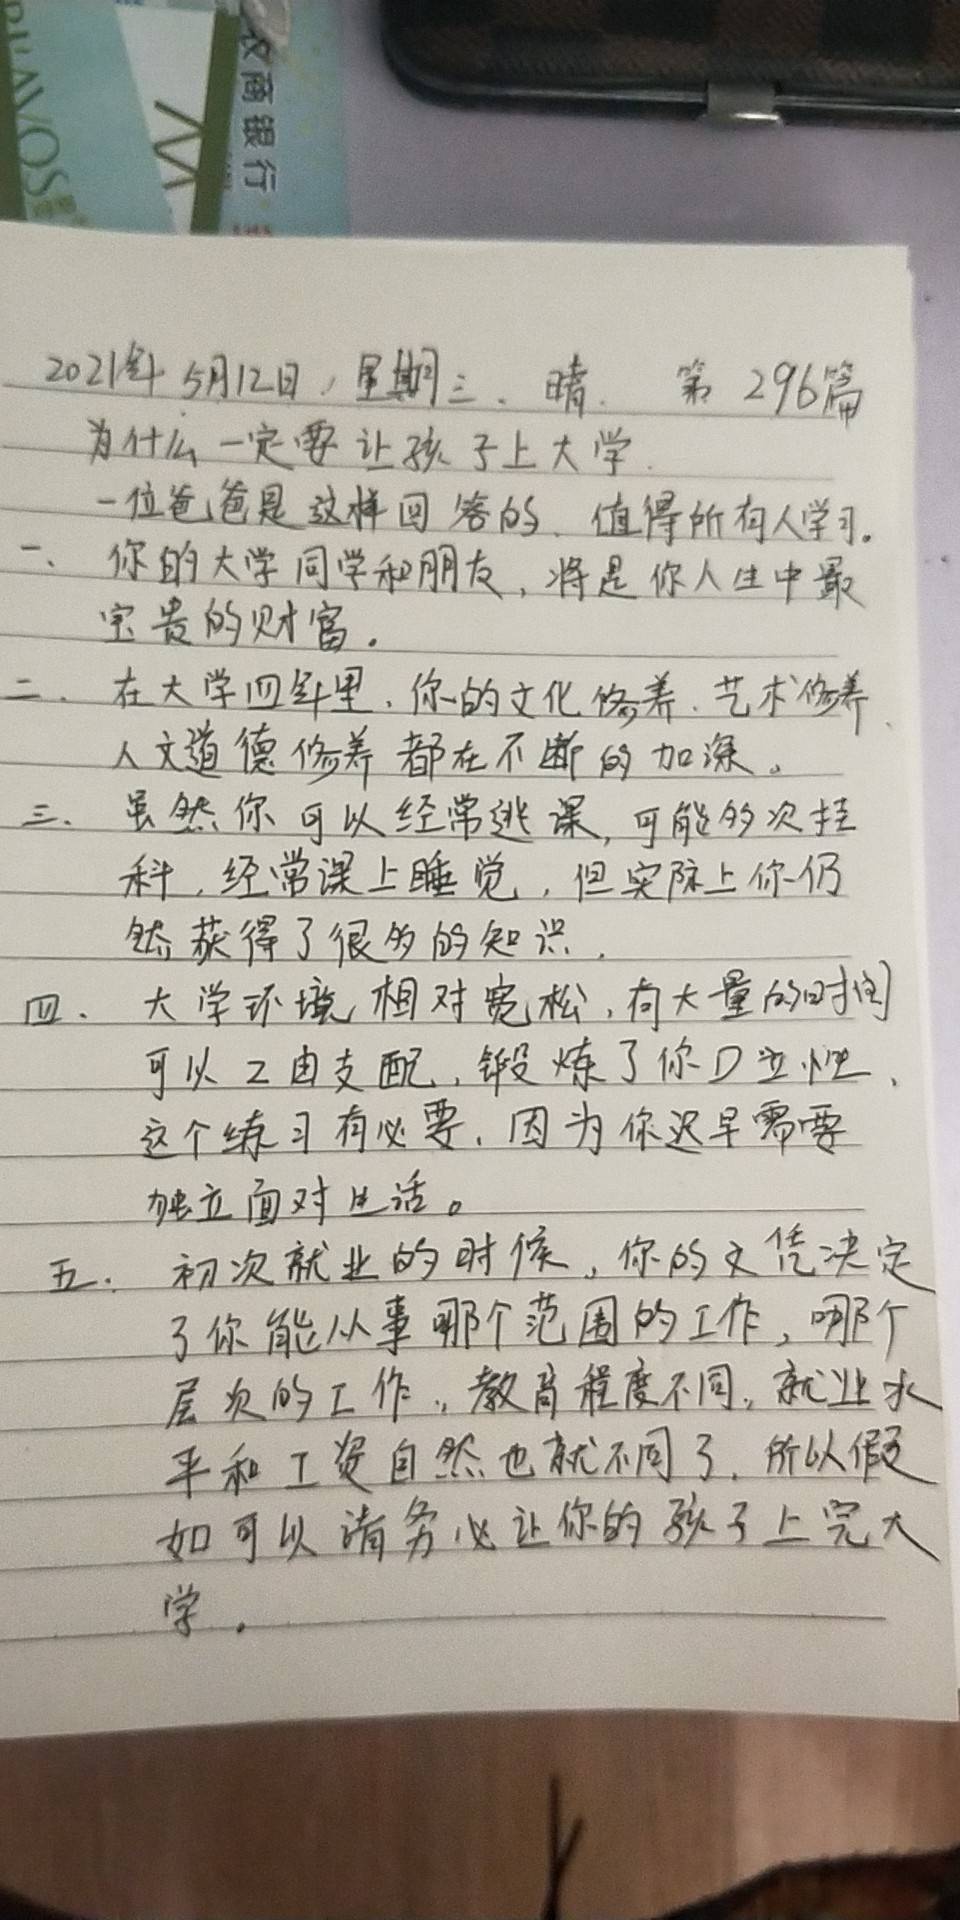 农商银行
2021年5月12日，星期三、晴. 第296篇
为什么一定要让孩子上大学.
一位爸爸是这样回答的、值得所有人学习。
一、你的大学同学和朋友，将是你人生中最
宝贵的财富。
二、在大学四年里、你的文化修养、艺术修养、
人文道德修养都在不断的加深。
三、虽然你可以经常逃课，可能多次挂
科，经常课上睡觉，但实际上你仍
然获得了很多的知识.
四、大学环境相对宽松，有大量的时间
可以自由支配，锻炼了你D立性、
这个练习有必要、因为你迟早需要
独立面对生活。
五、初次就业的时候，你的文凭决定
了你能从事哪个范围的工作，哪个
层次的工作，教育程度不同，就业水
平和工资自然也就不同了，所以假
如可以请务必让你的孩子上完大
学。